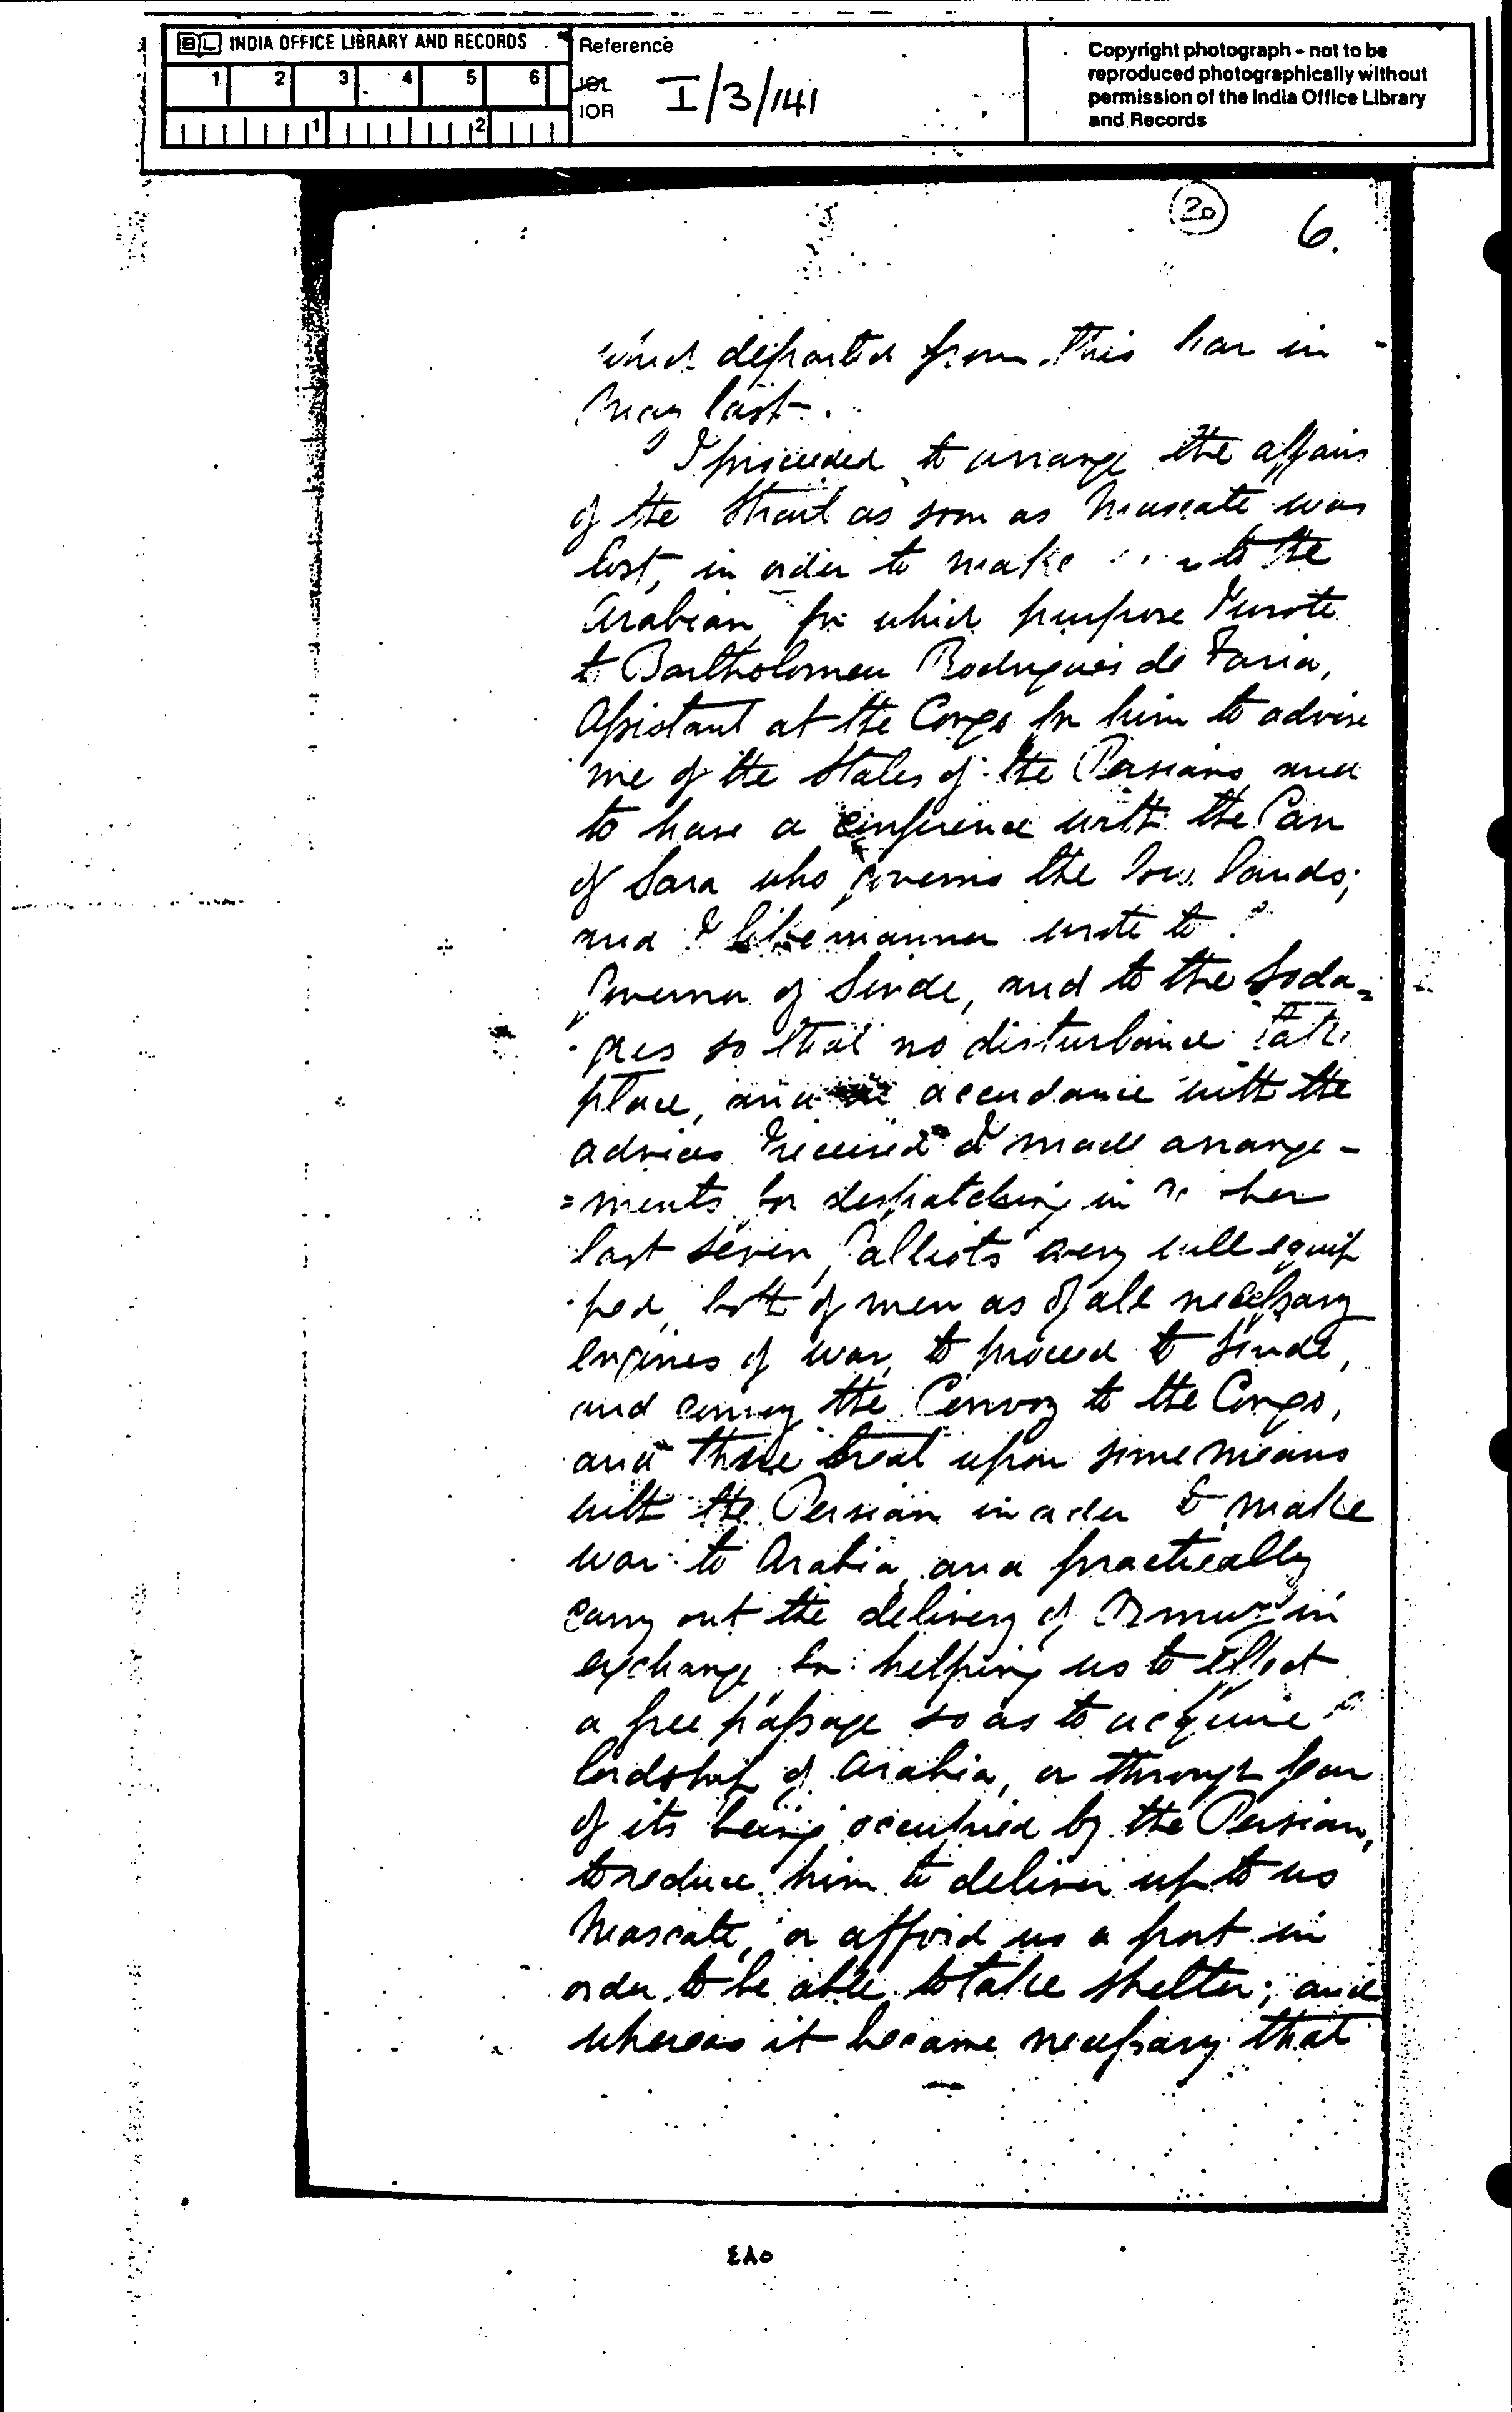 BL INDIA OFFICE LIBRARY AND RECORDS
1 2 3 4 5 6
1 2
Reference
IOL
IOR
I/3/141
Copyright photograph – not to be
reproduced photographically without
permission of the India Office Library
and Records
20
6.
which departed from this bar in
May last.
I proceeded to arrange the affairs
of the Strait as soon as Mascate was
lost, in order to make to the
Arabian, for which purpose I wrote
to Bartholomeu Rodrigues de Faria,
Assistant at the Congo for him to advise
me of the States of the Persians and
to have a conference with the Can
of Lara who governs the low lands;
and I likemanner wrote to
Governor of Sinde, and to the Soda=
gres so that no disturbance take
place, and in accordance with the
advices received I made arrange-
=ments for despatching in
last seven Galliots very well equip
ped, both of men as of all necessary
engines of war, to proceed to Sinde,
and convey the Convoy to the Congo,
and there treat upon some means
with the Persian in order to make
war to Arabia, and practically
carry out the delivery of Ormuz in
exchange for helping us to effect
a free passage so as to acquire
lordship of Arabia, or through fear
of its being occupied by the Persian,
to reduce him to deliver up to us
Mascate, or afford us a port in
order to be able to take shelter; and
whereas it became necessary that
٤٨٥